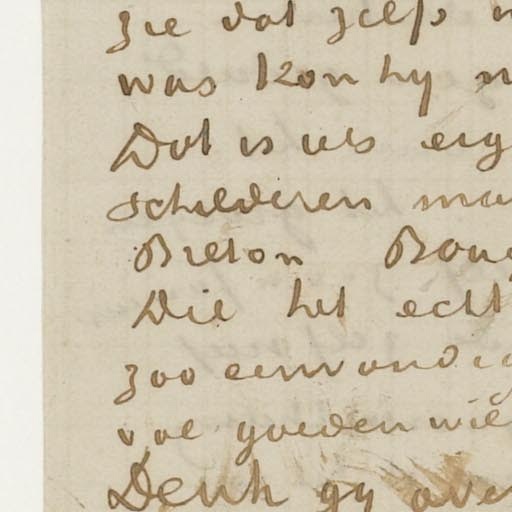 zie dat zelfs
was kon hy
Dat is iets erg
schilderen
Breton
Die het echt
zoo eenvoudig
vol goeden wil
Denk gy over